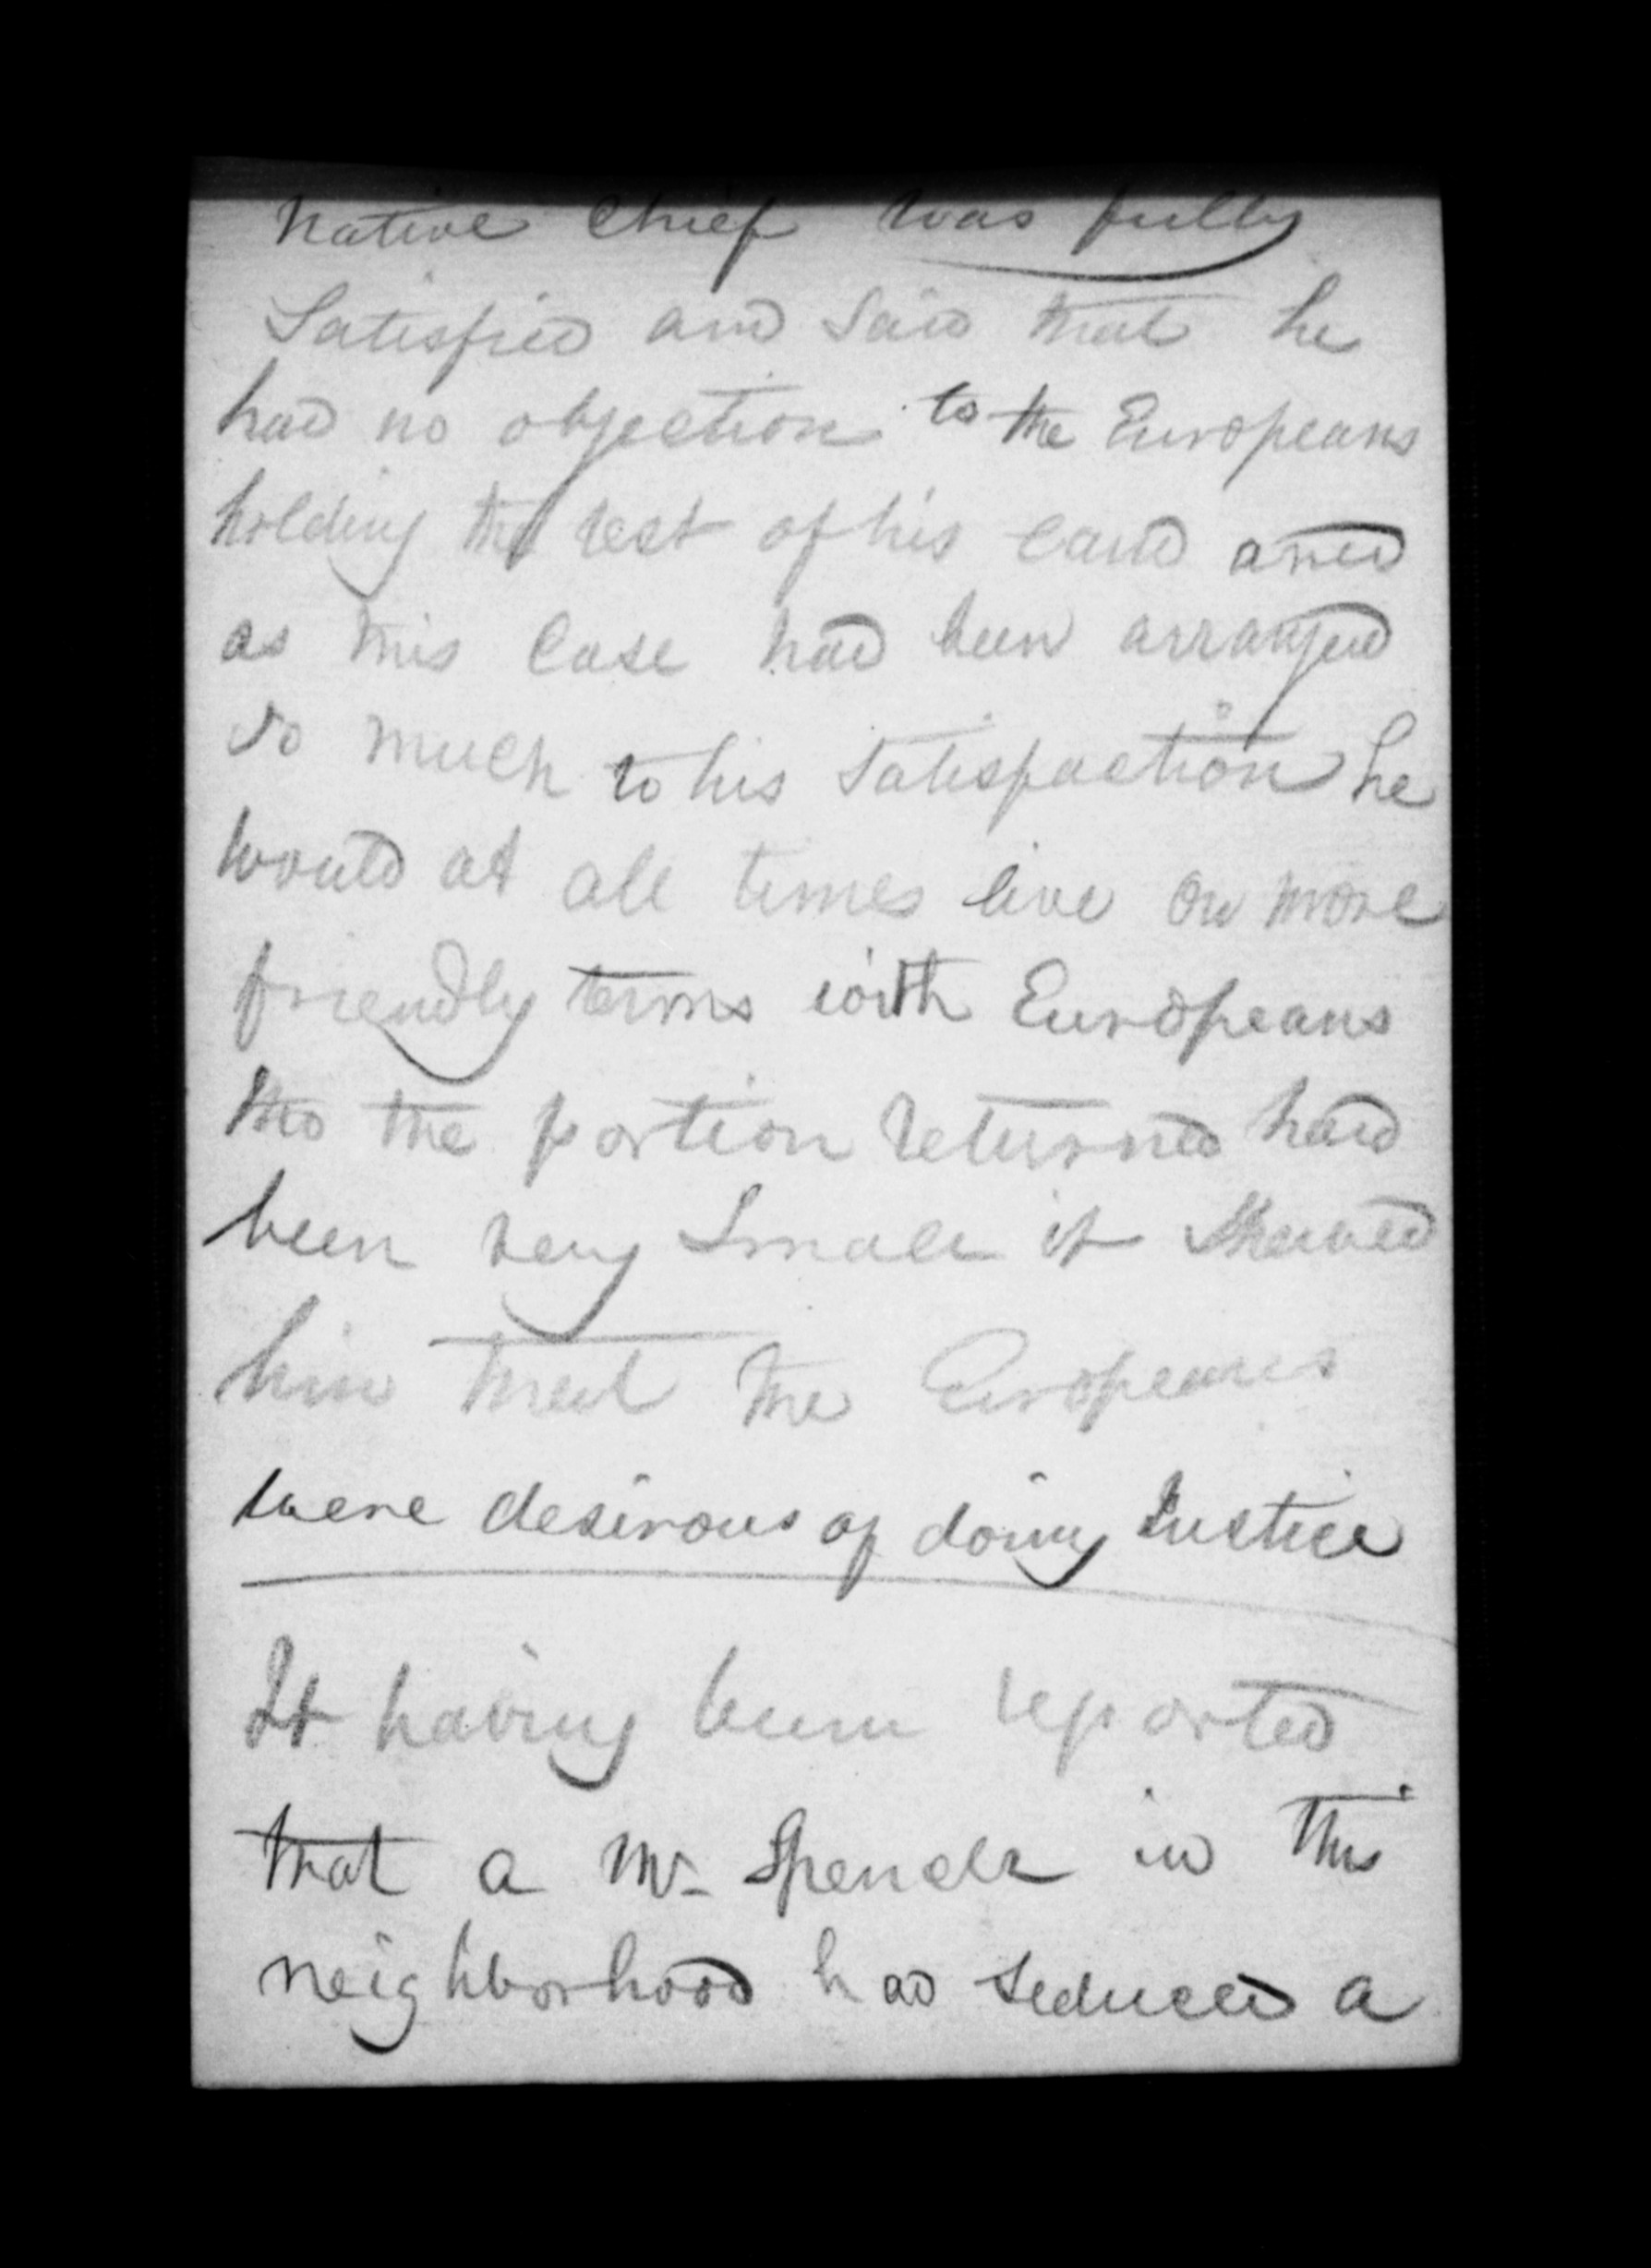 native Chief was fully
Satisfied and Said that he
had no objection to the Europeans
holding the rest of his land and
as this Case had been arranged
so much to his Satisfaction he
would at all times live on more
friendly terms with Europeans
tho the portion returned had
been very Small it shewed
him that the Europeans
were desirous of doing Justice
It having been reported
that a Mr. in this
neighborhood had seduced a